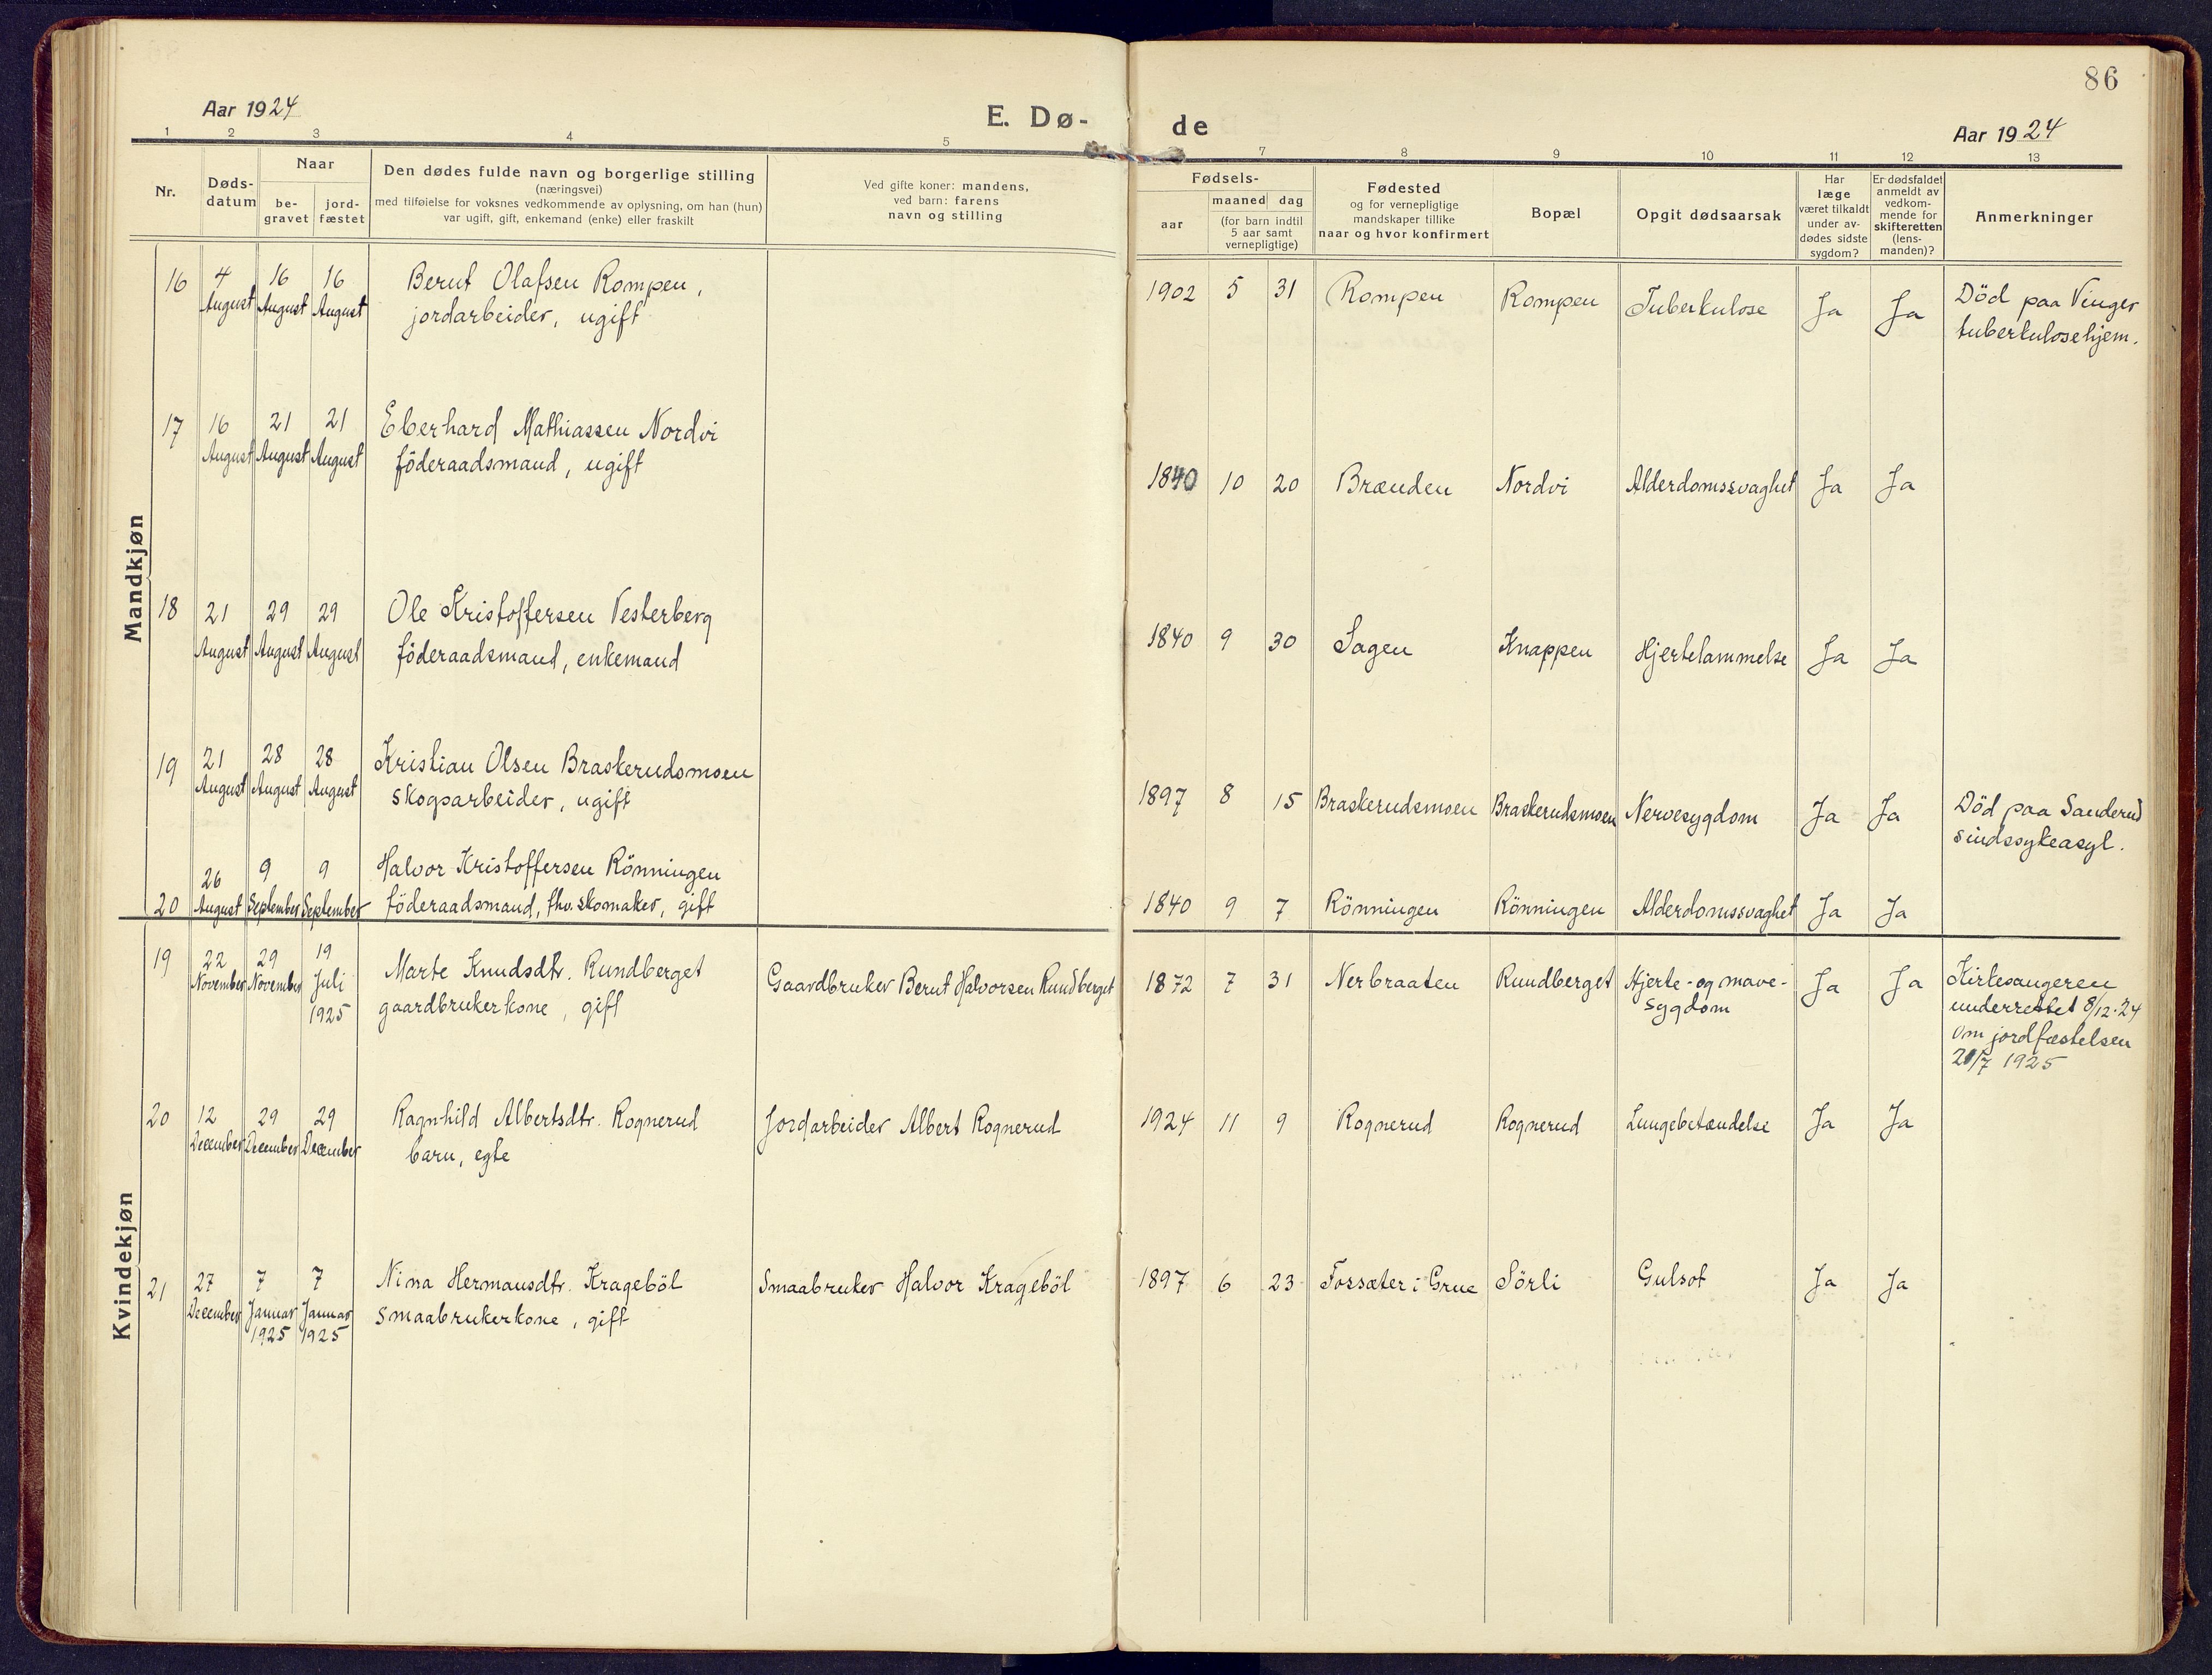 86
Aar 1924
E. Dø-
de
Aar 1924
1 2 3 4 5 7 8 9 10 11 12 13
Nr.
Døds-
datum
Naar
be-
gravet
jord-
fæstet
Den dødes fulde navn og borgerlige stilling
(næringsvei)
med tilføielse for voksnes vedkommende av oplysning, om han (hun)
var ugift, gift, enkemand (enke) eller fraskilt
Ved gifte koner: mandens,
ved barn: farens
navn og stilling
Fødsels-
aar
maaned dag
(for barn indtil
5 aar samt
vernepligtige)
Fødested
og for vernepligtige
mandskaper tillike
naar og hvor konfirmert
Bopæl
Opgit dødsaarsak
Har
læge
været tilkaldt
under av-
dødes sidste
sygdom?
Er dødsfaldet
anmeldt av
vedkom-
mende for
skifteretten
(lens-
manden)?
Anmerkninger
Mandkjøn
16
4
August
16
August
16
August
Bernt Olafsen Rompen,
jordarbeider, ugift
1902 5 31
Rompen
Rompen
Tuberkulose
Ja
Ja
Död paa Vinger
tuberkulosehjem.
17
16
August
21
August
21
August
Eberhard Mathiassen Nordvi
föderaadsmand, ugift
1840 10 20
Brænden
Nordvi
Alderdomssvaghet
Ja
Ja
18
21
August
29
August
29
August
Ole Kristoffersen Vesterberg
föderaadsmand, enkemand
1840 9 30
Sagen
Knappen
Hjertelammelse
Ja
Ja
19
21
August
28
August
28
August
Kristian Olsen Braskerudsmoen
skogsarbeider, ugift
1897 8 15
Braskerudsmoen
Braskerudsmoen
Nervesygdom
Ja
Ja
Död paa Sanderud
sindssykeasyl.
20
26
August
9
September
9
September
Halvor Kristoffersen Rönningen
föderaadsmand, fhv. skomaker, gift
1840 9 7
Rönningen
Rönningen
Alderdomssvaghet
Ja
Ja
Kvindekjøn
19
22
November
29
November
19
Juli
1925
Marte Knudsdtr. Rundberget
gaardbrukerkone, gift
Gaardbruker Bernt Halvorsen Rundberget
1872 7 31
Nerbraaten
Rundberget
Hjerte- og mave-
sygdom
Ja
Ja
Kirkesangeren
underrettet 8/12-24
om jordfæstelsen
21/7 1925
20
12
December
29
December
29
December
Ragnhild Albertsdtr. Rognerud
barn, egte
Jordarbeider Albert Rognerud
1924 11 9
Rognerud
Rognerud
Lungebetændelse
Ja
Ja
21
27
December
7
Januar
1925
7
Januar
1925
Nina Hermansdtr. Krageböl
smaabrukerkone, gift
Smaabruker Halvor Krageböl
1897 6 23
Fossæter i Grue
Sörli
Gulsot
Ja
Ja